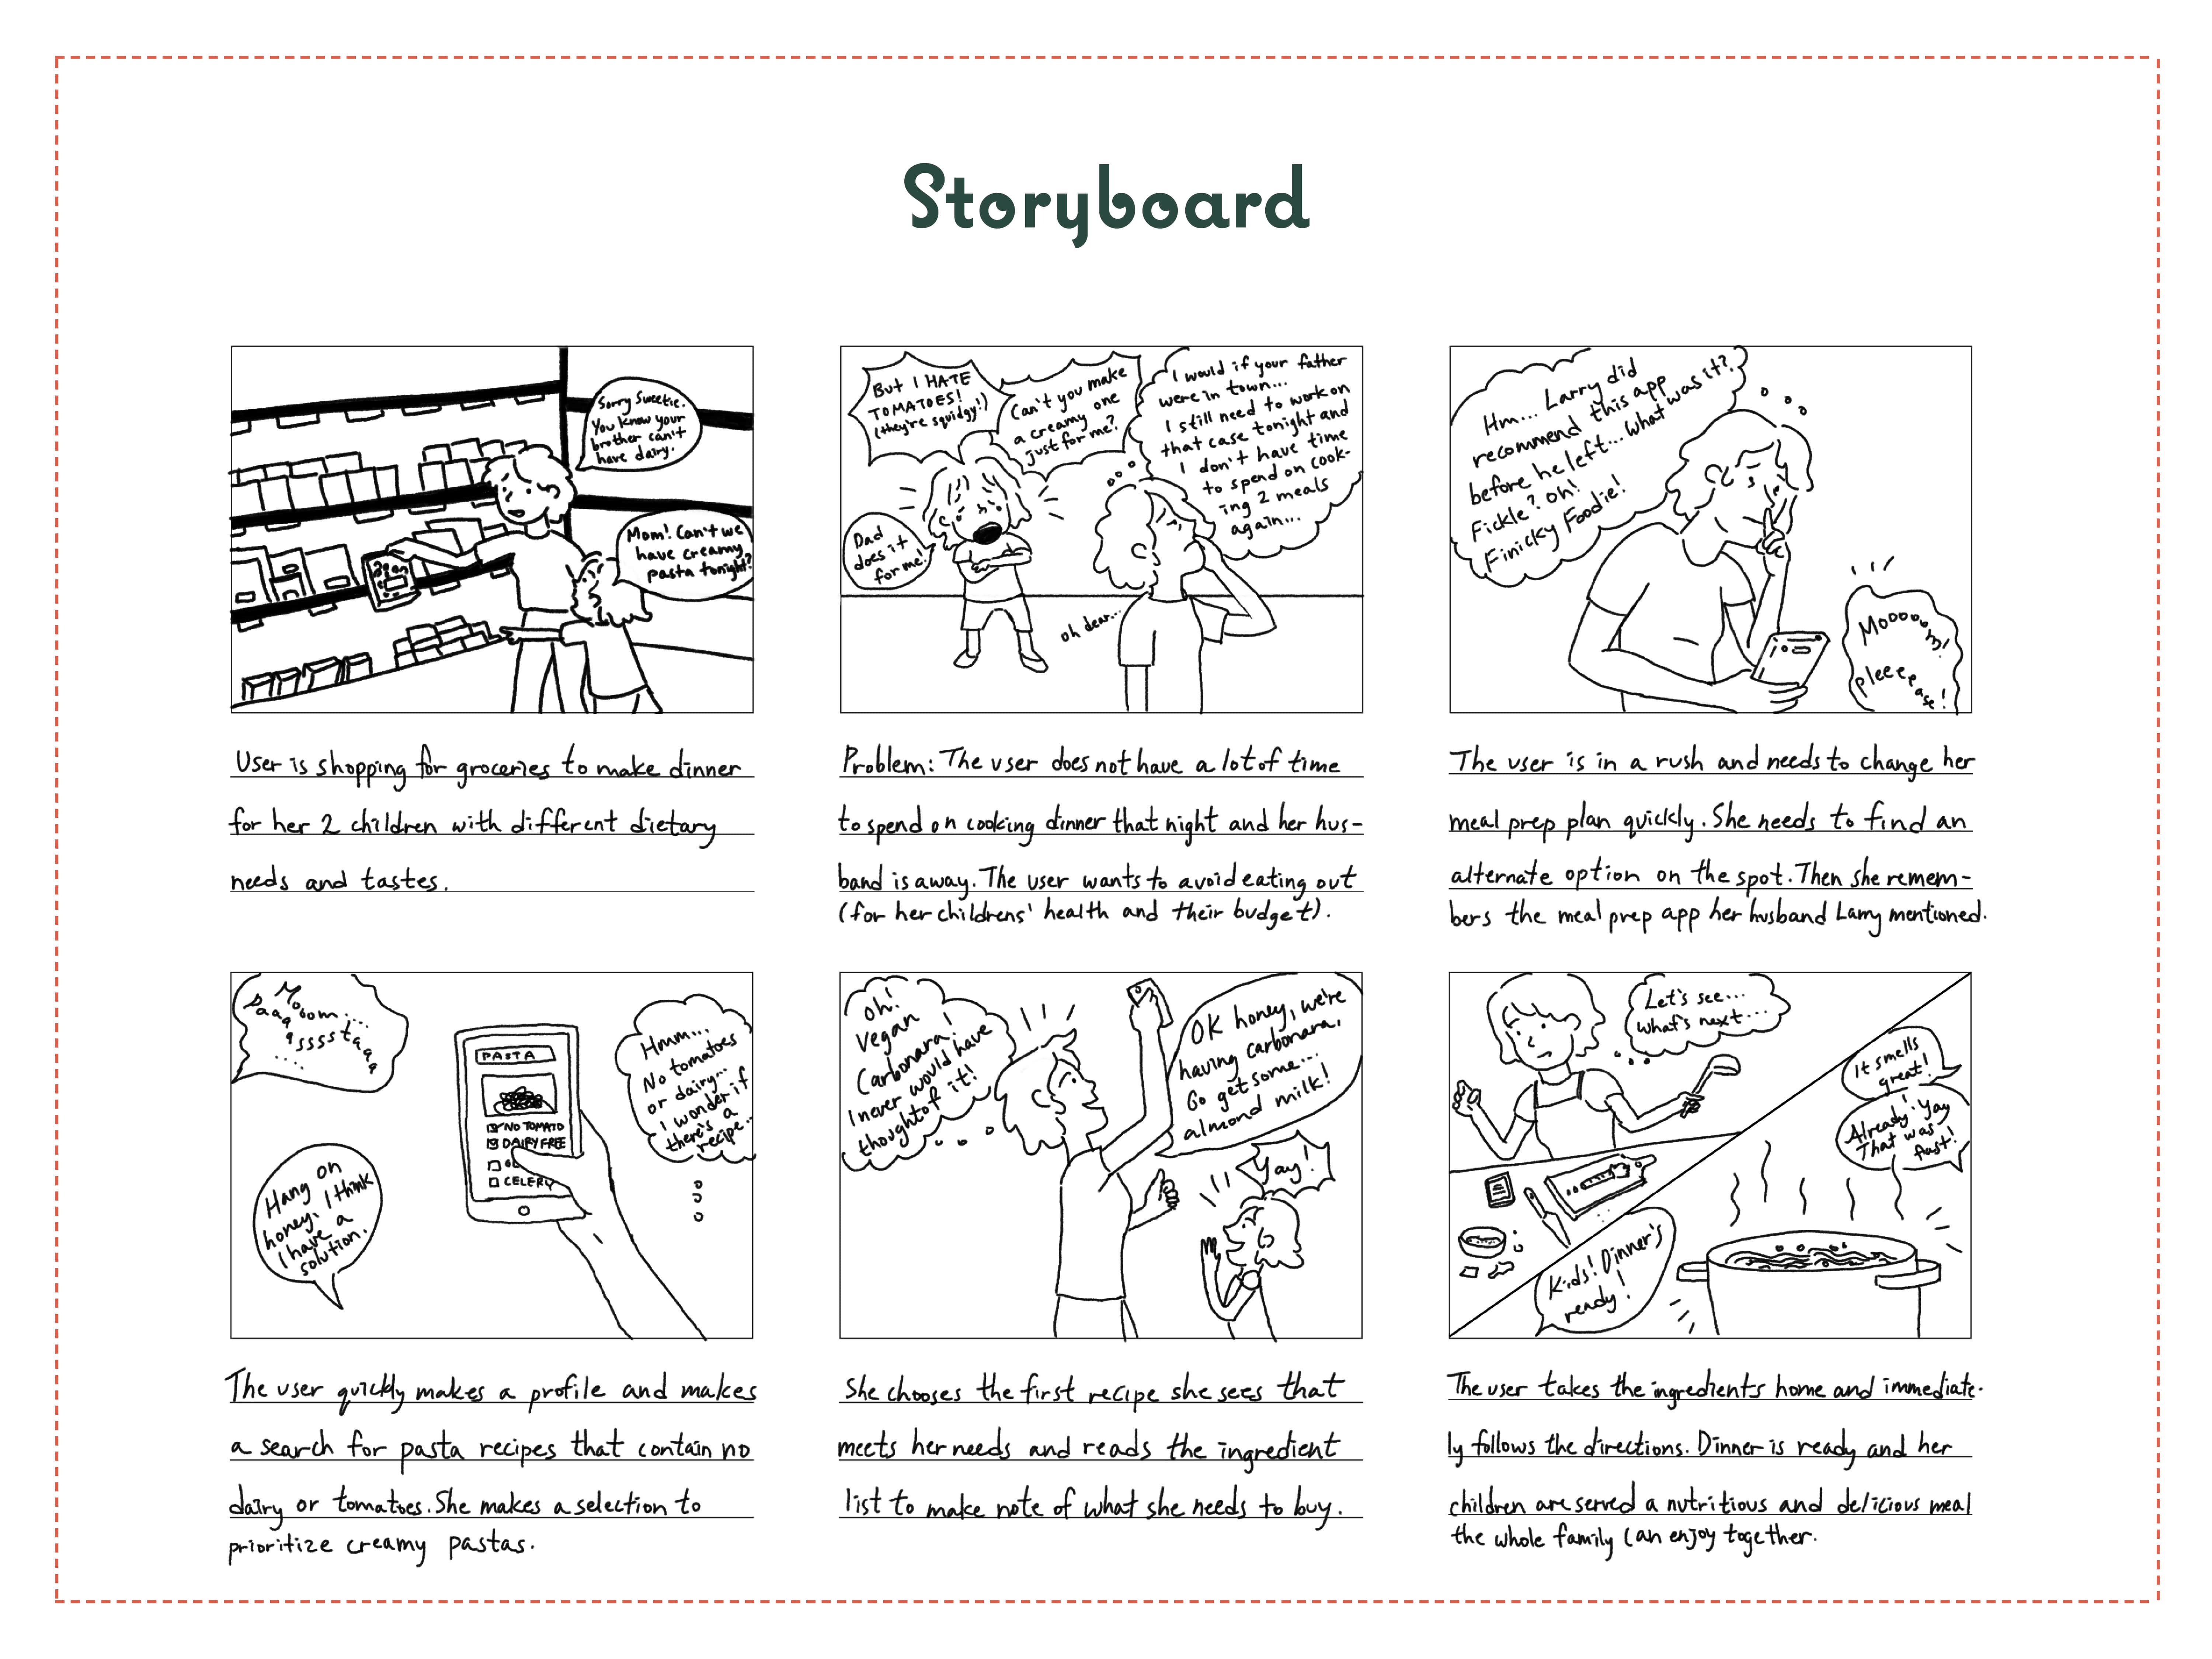 Storyboard
Sorry Sweetie.
You know your
brother can't
have dairy.
Mom! Can't we
have creamy
pasta tonight?
User is shopping for groceries to make dinner
for her 2 children with different dietary
needs and tastes.
But I HATE
TOMATOES!
(they're squidgy!)
Can't you make
a creamy one
just for me?
Dad
does it
for me!
I would if your father
were in town...
I still need to work on
that case tonight and
I don't have time
to spend on cook-
ing 2 meals
again...
oh dear...
Problem: The user does not have a lot of time
to spend on cooking dinner that night and her hus-
band is away. The user wants to avoid eating out
(for her childrens' health and their budget).
Hm... Larry did
recommend this app
before he left... what was it?
Fickle? Oh!
Finicky Foodie!
Mooooom!
pleeease!
The user is in a rush and needs to change her
meal prep plan quickly. She needs to find an
alternate option on the spot. Then she remem-
bers the meal prep app her husband Larry mentioned.
Moooom....
Paaaasssstaaa
....
Hang on
honey. I think
I have a
solution.
PASTA
NO TOMATO
DAIRY FREE
CELERY
Hmm...
No tomatoes
or dairy...
I wonder if
there's a
recipe...
The user quickly makes a profile and makes
a search for pasta recipes that contain no
dairy or tomatoes. She makes a selection to
prioritize creamy pastas.
Oh!
Vegan
Carbonara!
I never would have
thought of it!
OK honey, we're
having carbonara,
Go get some...
almond milk!
Yay!
She chooses the first recipe she sees that
meets her needs and reads the ingredient
list to make note of what she needs to buy.
Let's see...
what's next...
It smells
great!
Already! Yay
That was
fast!
Kids! Dinner's
ready!
The user takes the ingredients home and immediate-
ly follows the directions. Dinner is ready and her
children are served a nutritious and delicious meal
the whole family can enjoy together.